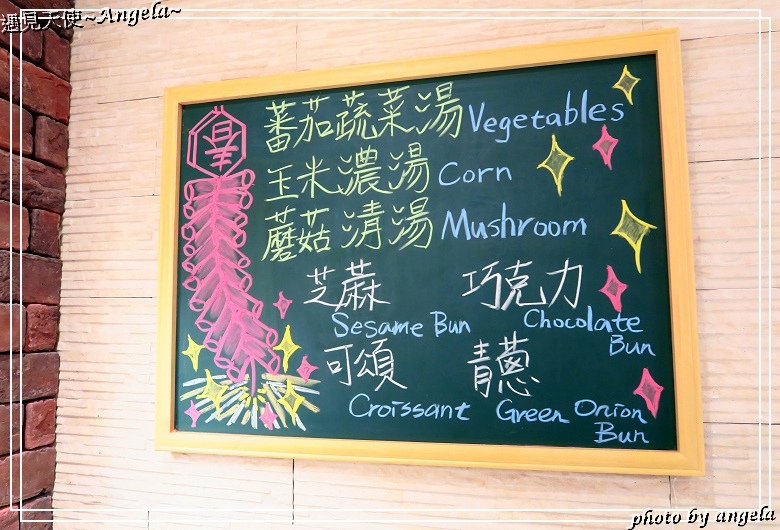 遇見天使~Angela~
蕃茄蔬菜湯 Vegetables
玉米濃湯 Corn
蘑菇清湯 Mushroom
芝蔴 巧克力
Sesame Bun Chocolate Bun
可頌 青蔥
Croissant Green Onion Bun
photo by angela